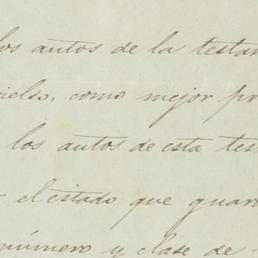 los autos de la testa
como mejor pr
los autos de esta tes
el estado que guar
número y clase de